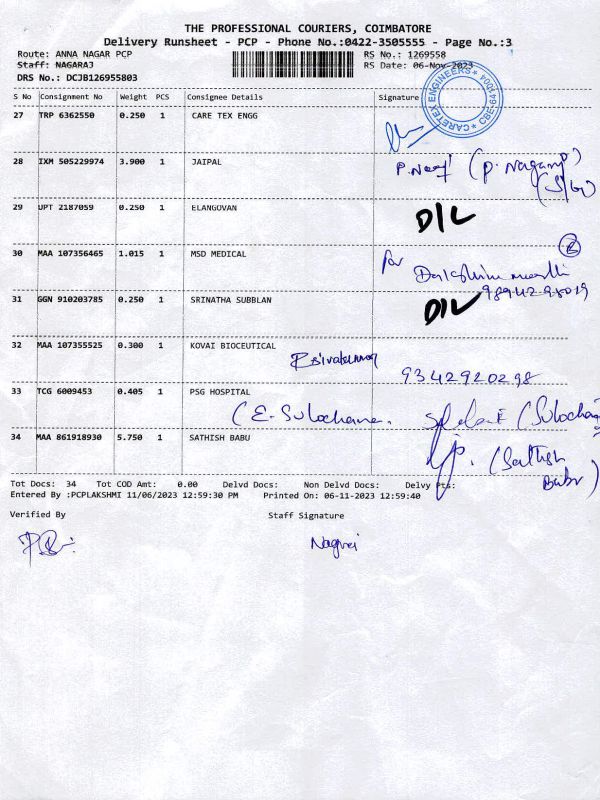 THE PROFESSIONAL COURIERS, COIMBATORE
Delivery Runsheet - PCP - Phone No.:0422-3505555 - Page No.:3
Route: ANNA NAGAR PCP RS No.: 1269558
Staff: NAGARAJ RS Date: 06-Nov-2023
DRS No.: DCJB126955803
S No Consignment No Weight PCS Consignee Details Signature
CARETEX ENGINEERS CBE-641004
27 TRP 6362550 0.250 1 CARE TEX ENGG
28 IXM 505229974 3.900 1 JAIPAL
(P. Nagaraj)
29 UPT 2187059 0.250 1 ELANGOVAN D/L
30 MAA 107356465 1.015 1 MSD MEDICAL for
31 GGN 910203785 0.250 1 SRINATHA SUBBLAN D/L
32 MAA 107355525 0.300 1 KOVAI BIOCEUTICAL
9342920298
33 TCG 6009453 0.405 1 PSG HOSPITAL
(E. Sulochana.
34 MAA 861918930 5.750 1 SATHISH BABU
(Sathish
Babu)
Tot Docs: 34 Tot COD Amt: 0.00 Delvd Docs: Non Delvd Docs: Delvy Pts:
Entered By :PCPLAKSHMI 11/06/2023 12:59:30 PM Printed On: 06-11-2023 12:59:40
Verified By Staff Signature